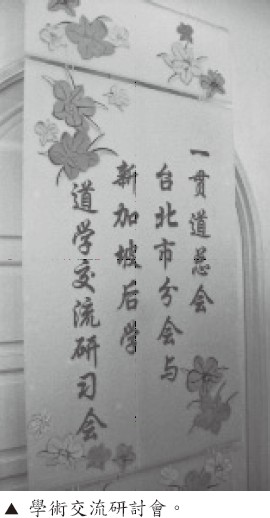 一贯道总会
台北市分会与
新加坡后学
道学交流研习会
▲ 學術交流研討會。